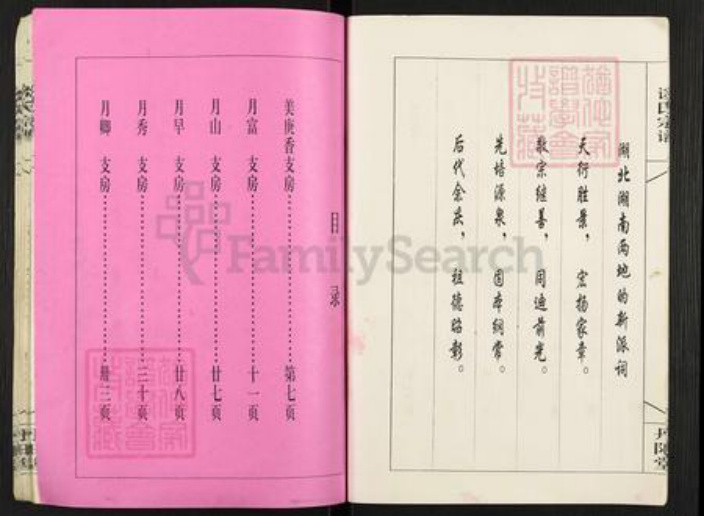 湖北湖南两地的新派词
天衍胜景，宏扬家章。
敦宗继善，周迪前光。
先培源泉，固本纲常。
后代余庆，祖德昭彰。
目录
美庚香支房……第七页
月富 支房……十一页
月山 支房……廿七页
月早 支房……廿八页
月秀 支房……三十页
月卿 支房……卅三页
FamilySearch